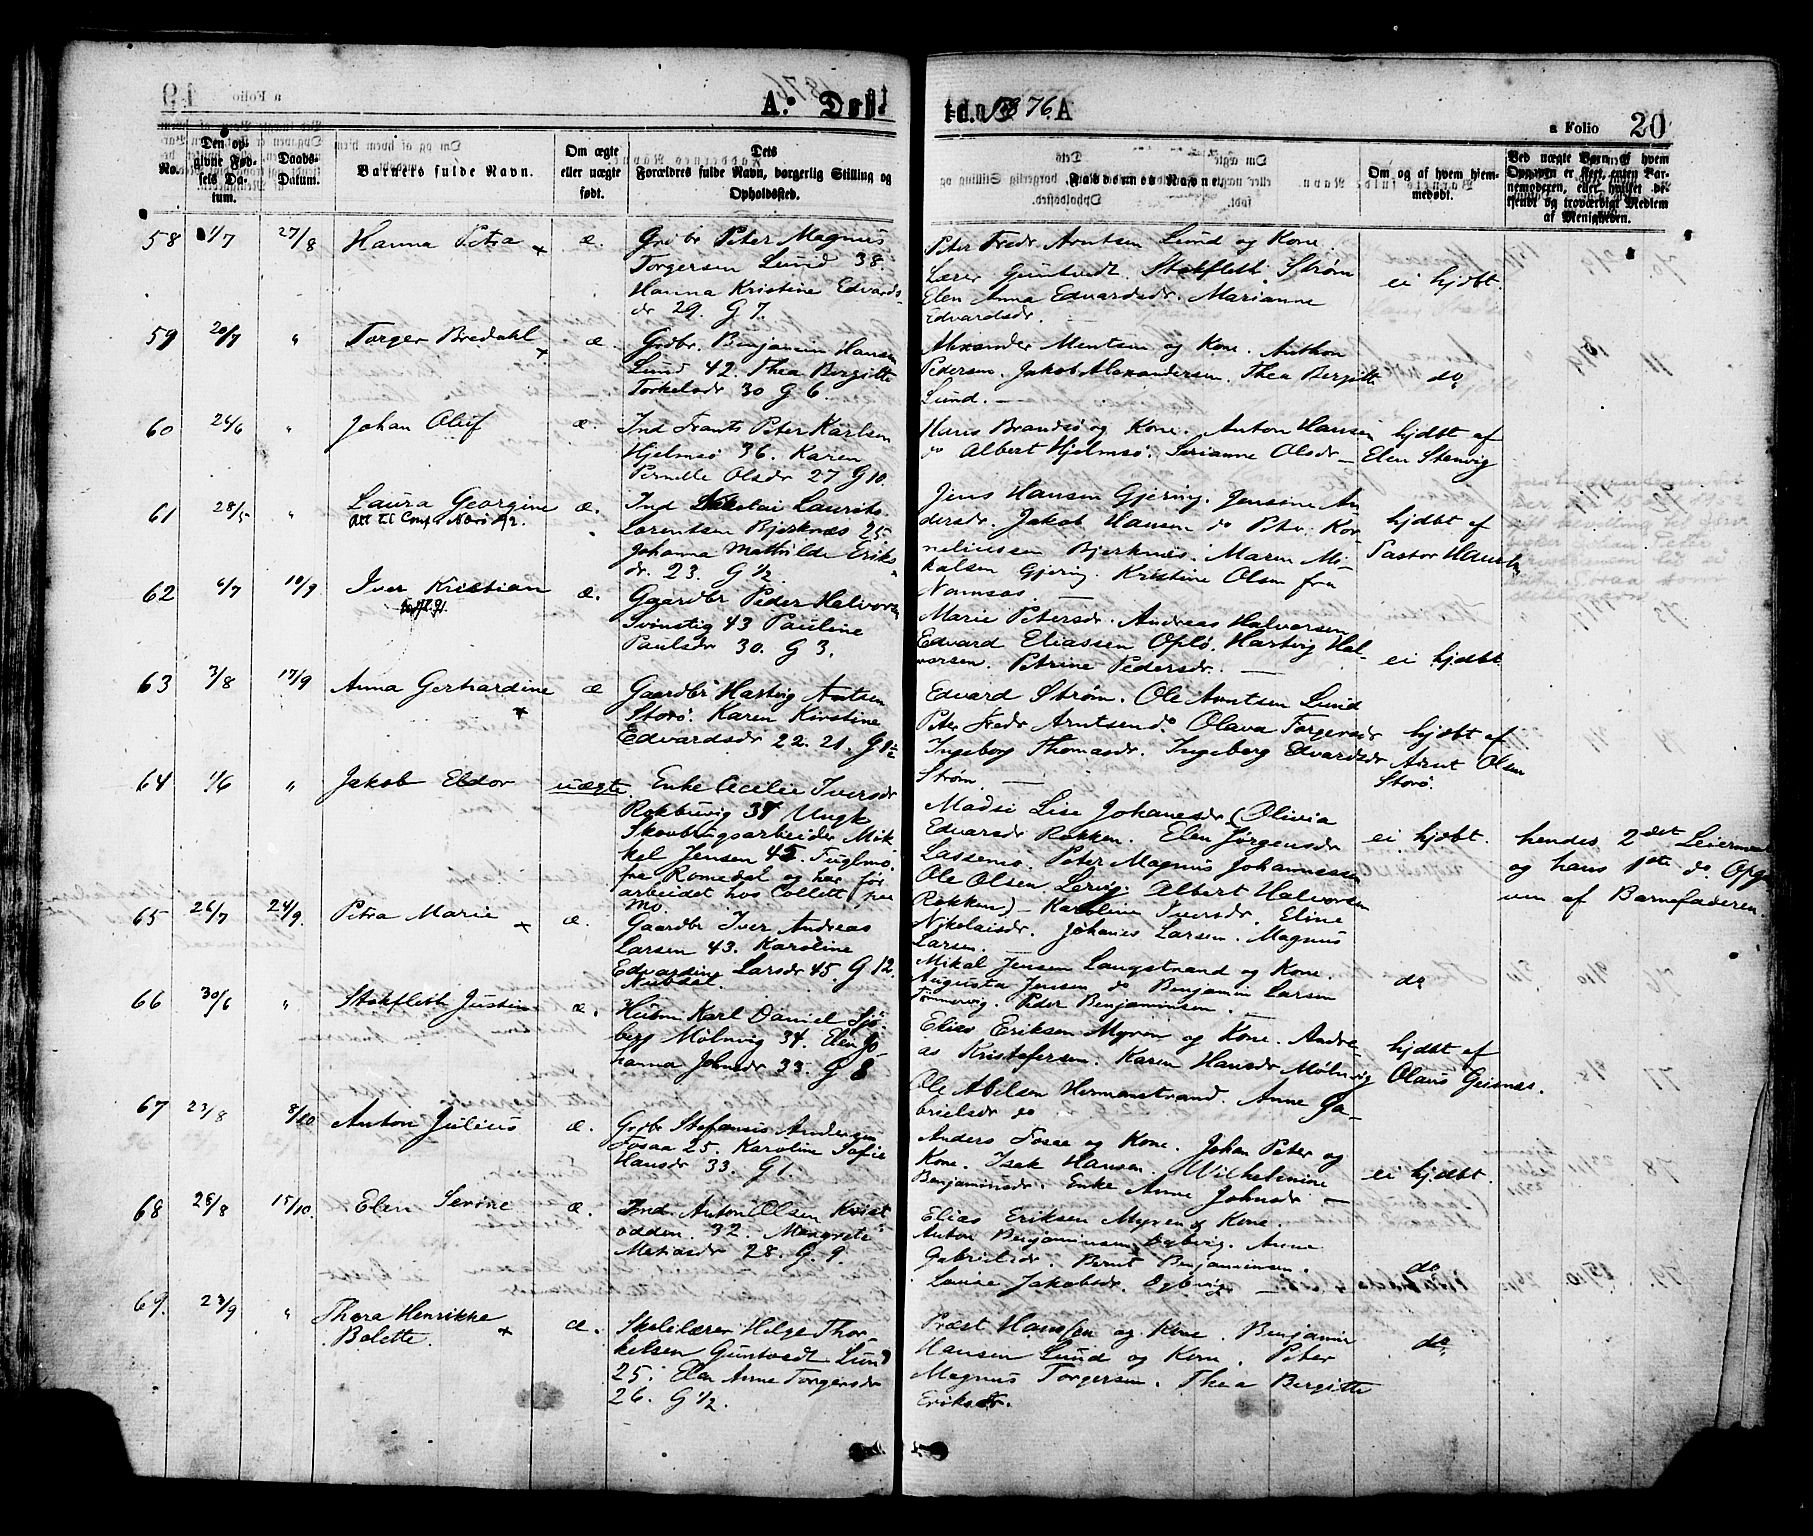 A. Døbte. 1876. A
a Folio 20
No.
Den opgivne Fødsels Datum.
Daabs-Datum.
Barnets fulde Navn.
Om ægte eller uægte født.
Dets Forældres fulde Navn, borgerlig Stilling og Opholdssted.
Faddernes Navne.
Om og af hvem hjemmedøbt.
Ved uægte Børn af hvem Opgaven er skeet, enten Barnemoderen, eller hvilket vitsendt og troværdigt Medlem af Menigheden.
58 1/7 27/8 Hanna Petra æ.
Grdbr Peter Magnus
Torgersen Lund 38.
Hanna Kristine Edvards-
dr 29. G 7.
Peter Fredr Arntsen Lund og Kone.
Lærer Guntvedt. Stokfleth Strøm
Elen Anna Edvardsdr. Marianne
Edvardsdr.
ei hjdbt.
59 20/7 " Torger Bredahl æ.
Grdbr. Benjamin Hansen
Lund 42. Thea Bergitte
Torkelsdr 30 G 6.
Alexander Mentsen og Kone. Anthon
Pedersen. Jakob Alexandersen. Thea Bergitte
Lund. —
do
60 24/6 " Johan Oluf æ.
Ind Frants Peter Karlsen
Hjelmsø 36. Karen
Pernelle Olsdr 27 G 10.
Hans Brandsø og Kone. Anton Hansen
do Albert Hjelmsø. Serianne Olsdr —
hjdbt af
Elen Stenvig
61 28/5 " Laura Georgine æ.
Ind Nikolai Laurits
Lorentsen Bjerknæs 25
Johanna Mathilde Eriks-
dr. 23. G 1/2.
Jens Hansen Gjering. Jensine An
dersdr. Jakob Hansen do Peter Kor
neliussen Bjerknæs. Maren Mi-
kalsen Gjering. Kristine Olsen fra
Namsos.
hjdbt af
Pastor Hansen
62 6/7 10/9 Iver Kristian æ.
Gaardbr Peder Halvorsen
Svinstig 43 Pauline
Paulsdr 30. G 3.
Marie Petersdr. Andreas Halvorsen
Edvard Eliassen Oplø. Hartvig Hal-
vorsen. Petrine Pedersdr. —
ei hjdbt
63 3/8 17/9 Anna Gerhardine æ
Gaardbr Hartvig Arntsen
Storø. Karen Kirstine
Edvardsdr 22. 21. G 1/2
Edvard Strøm. Ole Arntsen Lund
Peter Fredr Arntsen do Olava Torgersdr
Ingeborg Thomasdr. Ingeborg Edvardsdr
Strøm —
hjdbt af
Arnt Olsen
Storø.
64 1/6 " Jakob Eldor uægte
Enke Cecilie Iversdr
Rokkuvig 37 Ungk
Skovbrugsarbeider Mik
kel Jensen 45. Fuglmo.
fra Romedal og har før
arbeidet hos Collett paa
Mo.
Madsi Lise Johanesdr (Olivia
Edvarsdr Rokken. Elen Jørgensdr
Lassemo. Peter Magnus Johannessen
Ole Olsen Lervig. Albert Halvorsen
Rokken) —
ei hjdbt.
hendes 2det Leiermaal
og hans 1ste do. Opga
ven af Barnefaderen.
65 26/7 24/9. Petra Marie æ.
Gaardbr Iver Andreas
Larsen 43. Karoline
Edvardine Larsdr 45. G 12.
Nubdal.
Karoline Iversdr. Eline
Nikolaisdr. Johanes Larsen. Magnus
Larsen.
do
66 30/6 " Stokfleth Justin æ.
Husm Karl Daniel Sjø-
berg Mølnvig 34. Elen Jo
hanna Johnsdr 33. G 8
Mikal Jensen Langstrand og Kone.
Augusta Jensen do Benjamin Larsen
Tømmervig. Peder Benjaminsen. —
Elias Eriksen Myren og Kone. Andre-
as Kristofersen. Karen Hansdr Mølnvig
Ole Abelsen Hermanstrand. Anne Ga-
brielsdr do
hjdbt af
Olaus Geisnæs.
67 23/8 8/10 Anton Julius æ.
Grdbr Stefanus Andersen
Fosaa 25. Karoline Sofie
Hansdr 33. G 1.
Anders Fosaa og Kone. Johan Peter og
Kone. Isak Hansen. Wilhelmine
Benjaminsdr. Enke Anne Johnsdr —
ei hjdbt.
68 25/8 15/10. Elen Serine æ.
Ind. Anton Olsen Kvist
odden. 32. Margrete
Matiasdr 28. G. 9.
Elias Eriksen Myren og Kone.
Anton Benjaminsen Dybvig. Anne
Gabrielsdr. Bernt Benjaminsen.
Louise Jakobsdr. Dybvig —
do
69. 23/9 " Thora Henrikke
Bolette. æ.
Skolelærer Helge Thor-
kelsen Guntvedt Lund
25. Elen Anne Torgersdr
26. G 1/2.
Præst Hanssen og Kone. Benjamin
Hansen Lund og Kone. Peter
Magnus Torgersen. Thea Bergitte
Eriksdr.
do